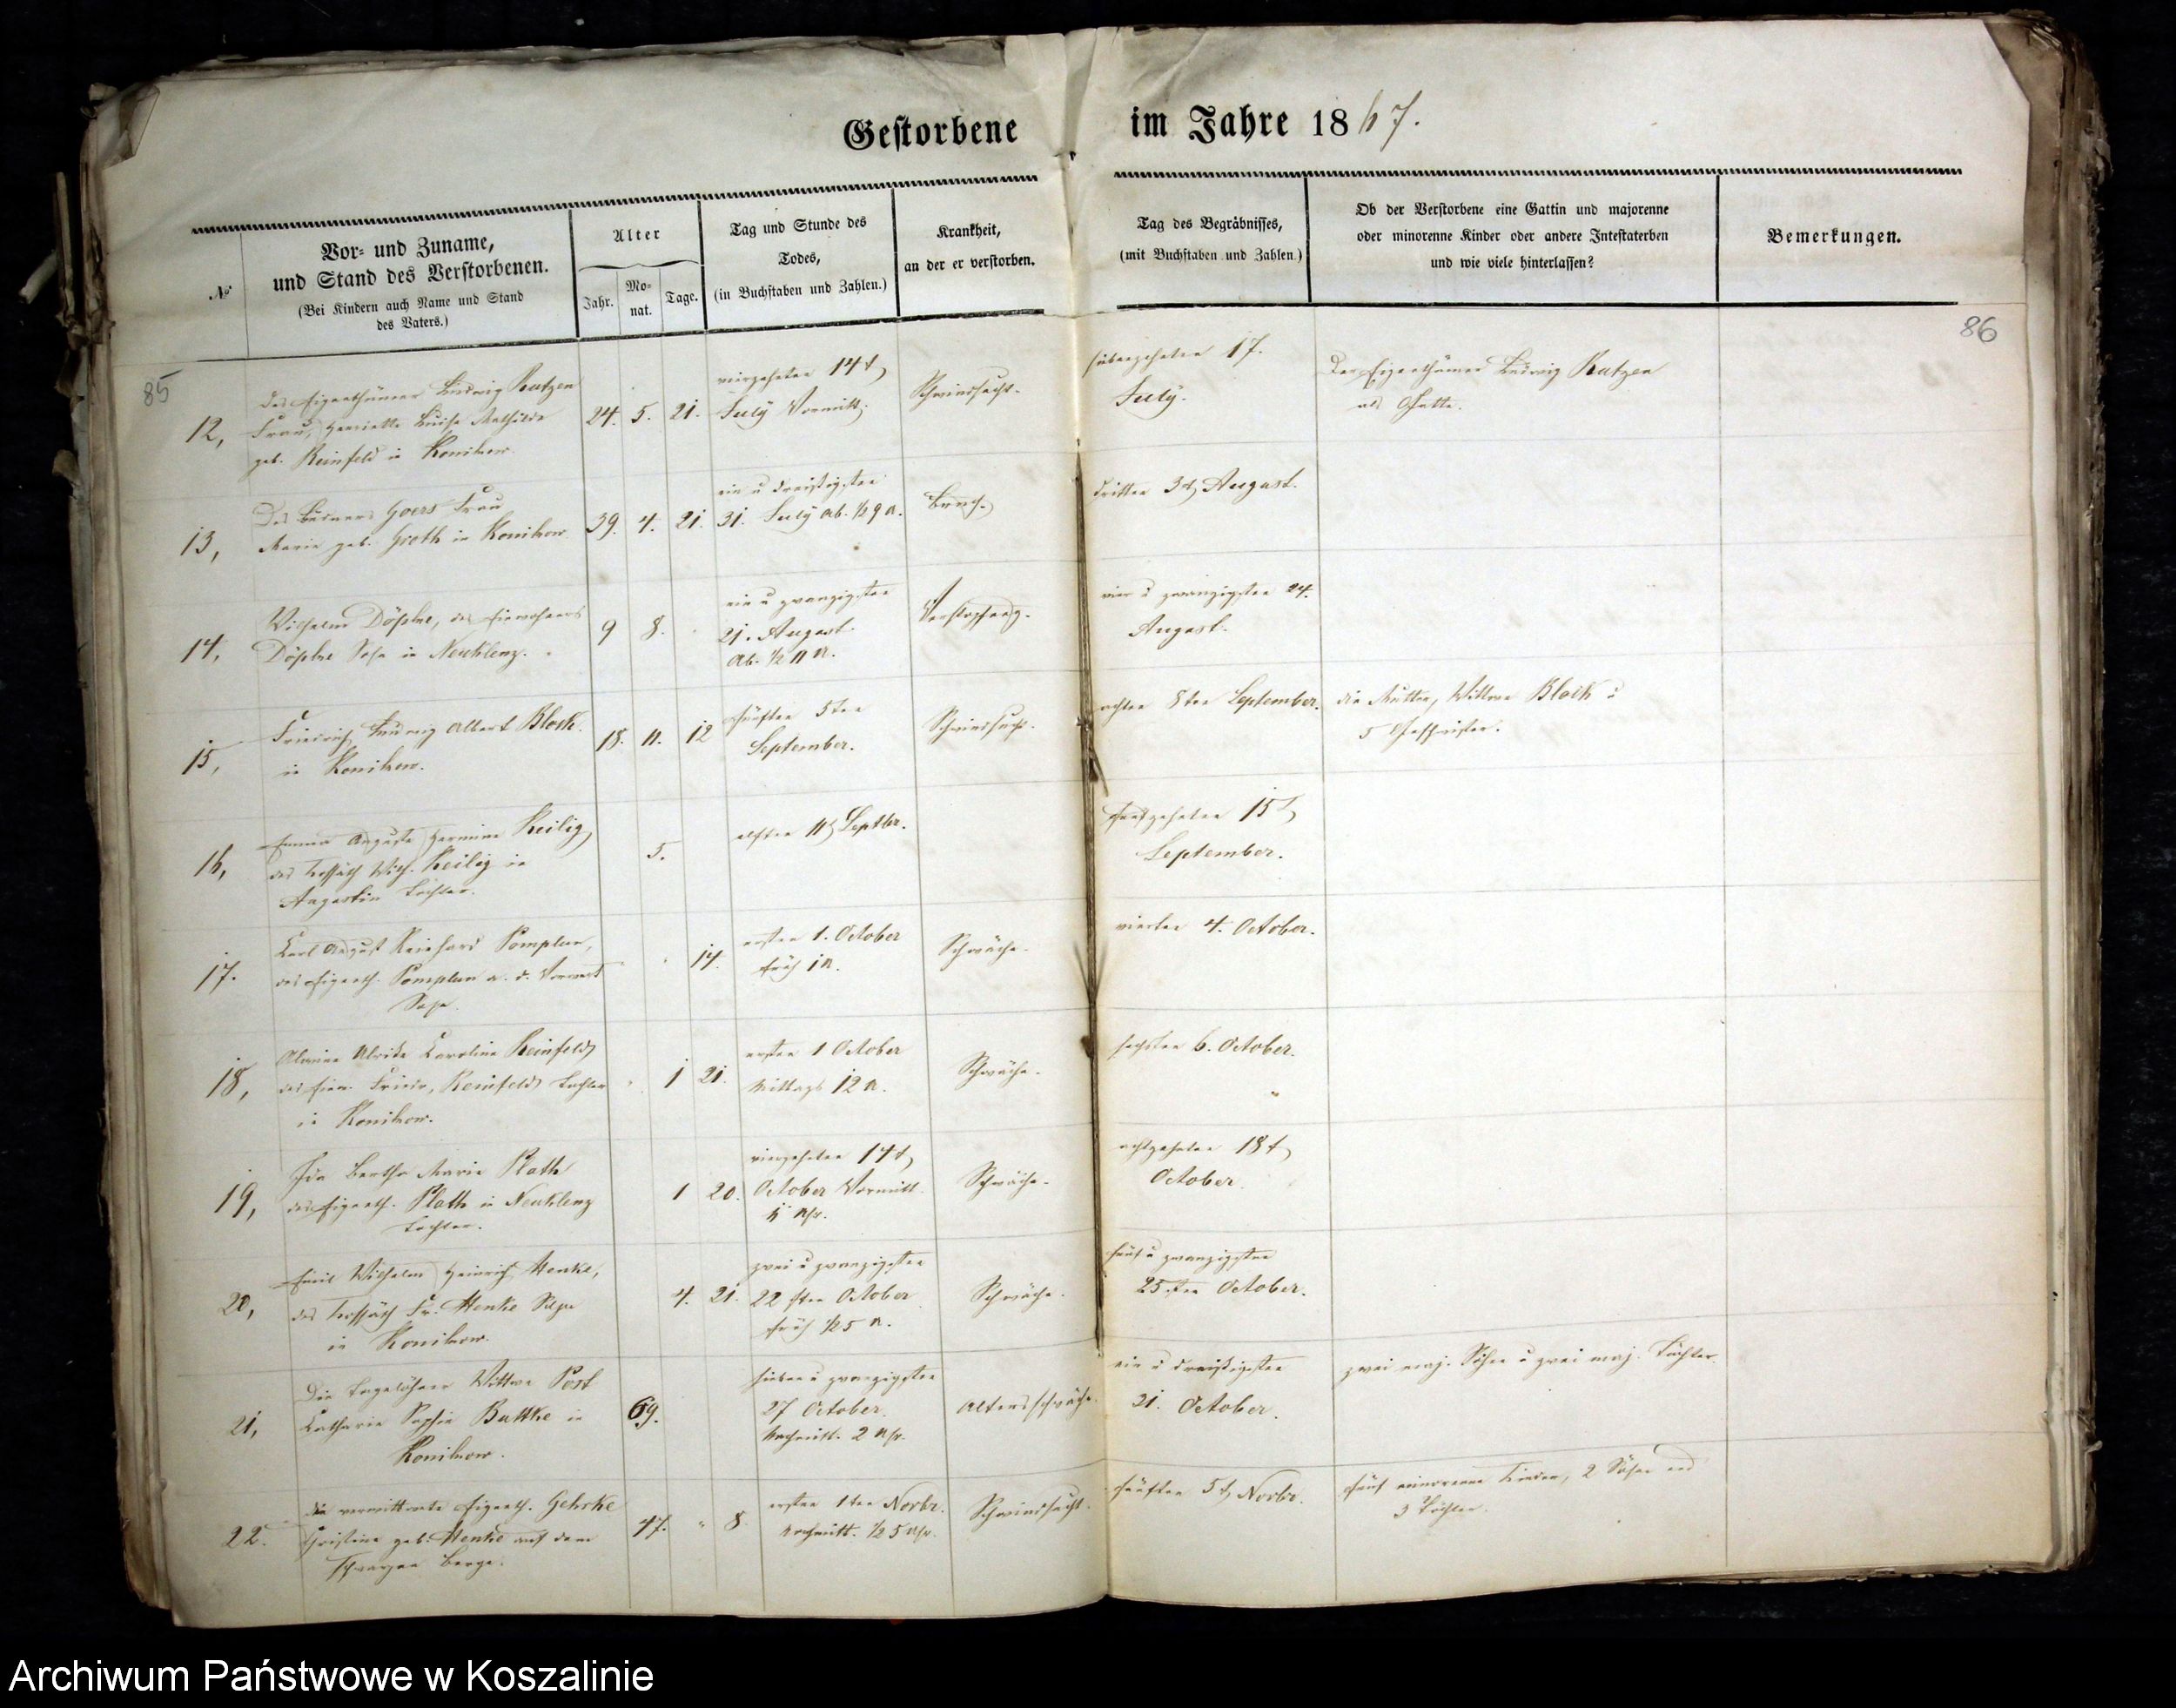 Gestorbene im Jahre 1867.
№
Vor- und Zuname,
und Stand des Verstorbenen.
(Bei Kindern auch Name und Stand
des Vaters.)
Alter
Jahr.
Mo-
nat.
Tage.
Tag und Stunde des
Todes,
(in Buchstaben und Zahlen.)
Krankheit,
an der er verstorben.
Tag des Begräbnisses,
(mit Buchstaben und Zahlen.)
Ob der Verstorbene eine Gattin und majorenne
oder minorenne Kinder oder andere Intestaterben
und wie viele hinterlassen?
Bemerkungen.
85
86
12,
Des Eigenthümer Ludwig Rutzen
Frau, Henriette Luise Mathilde
geb. Reinfeld in Konikow.
24. 5. 21.
vierzehnten 14t
July Vormitt.
Schwindsucht.
siebenzehnten 17.
July.
Der Eigenthümer Ludwig Rutzen
als Gatte.
13,
Des Goers Frau
Marie geb. Groth in Konikow.
39. 4. 21.
ein u dreißigsten
31. July Ab. 1/2 9 U.
dritten 3t August.
14,
Wilhelm des Einwohners
Sohn in Neuklenz.
9 8.
ein u zwanzigsten
21. August.
Ab. 1/2 11 U.
Verstopfung.
vier u zwanzigsten 24.
August.
15,
Friedrich Ludwig Albert Block.
in Konikow.
18. 11. 12
fünften 5ten
September.
Schwindsucht.
achten 8ten September.
die Mutter, Wittwe Block u
5 Geschwister.
16,
Emma Auguste Hermine Heilig,
des Kossäth Wilh. Heilig in
Augustin Tochter.
5.
elften 11t Septbr.
fünfzehnten 15t
September.
17.
Carl August Reinhard Pomplun,
des Eigenth. Pomplun a. d. Vorwerk
Sohn.
14.
ersten 1. October
früh 1 U.
Schwäche.
vierten 4. October.
18,
Alwine Ulrike Caroline Reinfeld,
des Einw. Friedr. Reinfeld Tochter
in Konikow.
1 21.
ersten 1 October
Mittags 12 U.
Schwäche.
sechsten 6. October.
19,
Ida Bertha Marie Plath
des Eigenth. Plath in Neuklenz
Tochter.
1 20.
vierzehnten 14t
October Vormitt.
Uhr.
Schwäche.
achtzehnten 18t
October.
20,
Emil Wilhelm Heinrich Henke,
des Kossäth Fr. Henke Sohn
in Konikow.
4. 21.
zwei u zwanzigsten
22 sten October
früh 1/2 5 U.
Schwäche.
fünf u zwanzigsten
25 sten October.
21,
Die Tagelöhner Wittwe Post
Catharine Sophie Buttke in
Konikow.
69.
sieben u zwanzigsten
27 October.
Nachmitt. 2 Uhr.
Altersschwäche.
ein u dreißigsten
31. October.
zwei maj. Söhne u zwei maj. Töchter.
22.
die verwittwete Eigenth. Gehrke
Christine geb. Henke auf dem
Schwarzen Berge.
47. " 8.
ersten 1ten Novbr.
Nachmitt. 1/2 5 Uhr.
Schwindsucht.
fünften 5t Novbr.
fünf minorenne Kinder, 2 Söhne und
3 Töchter.
Archiwum Państwowe w Koszalinie